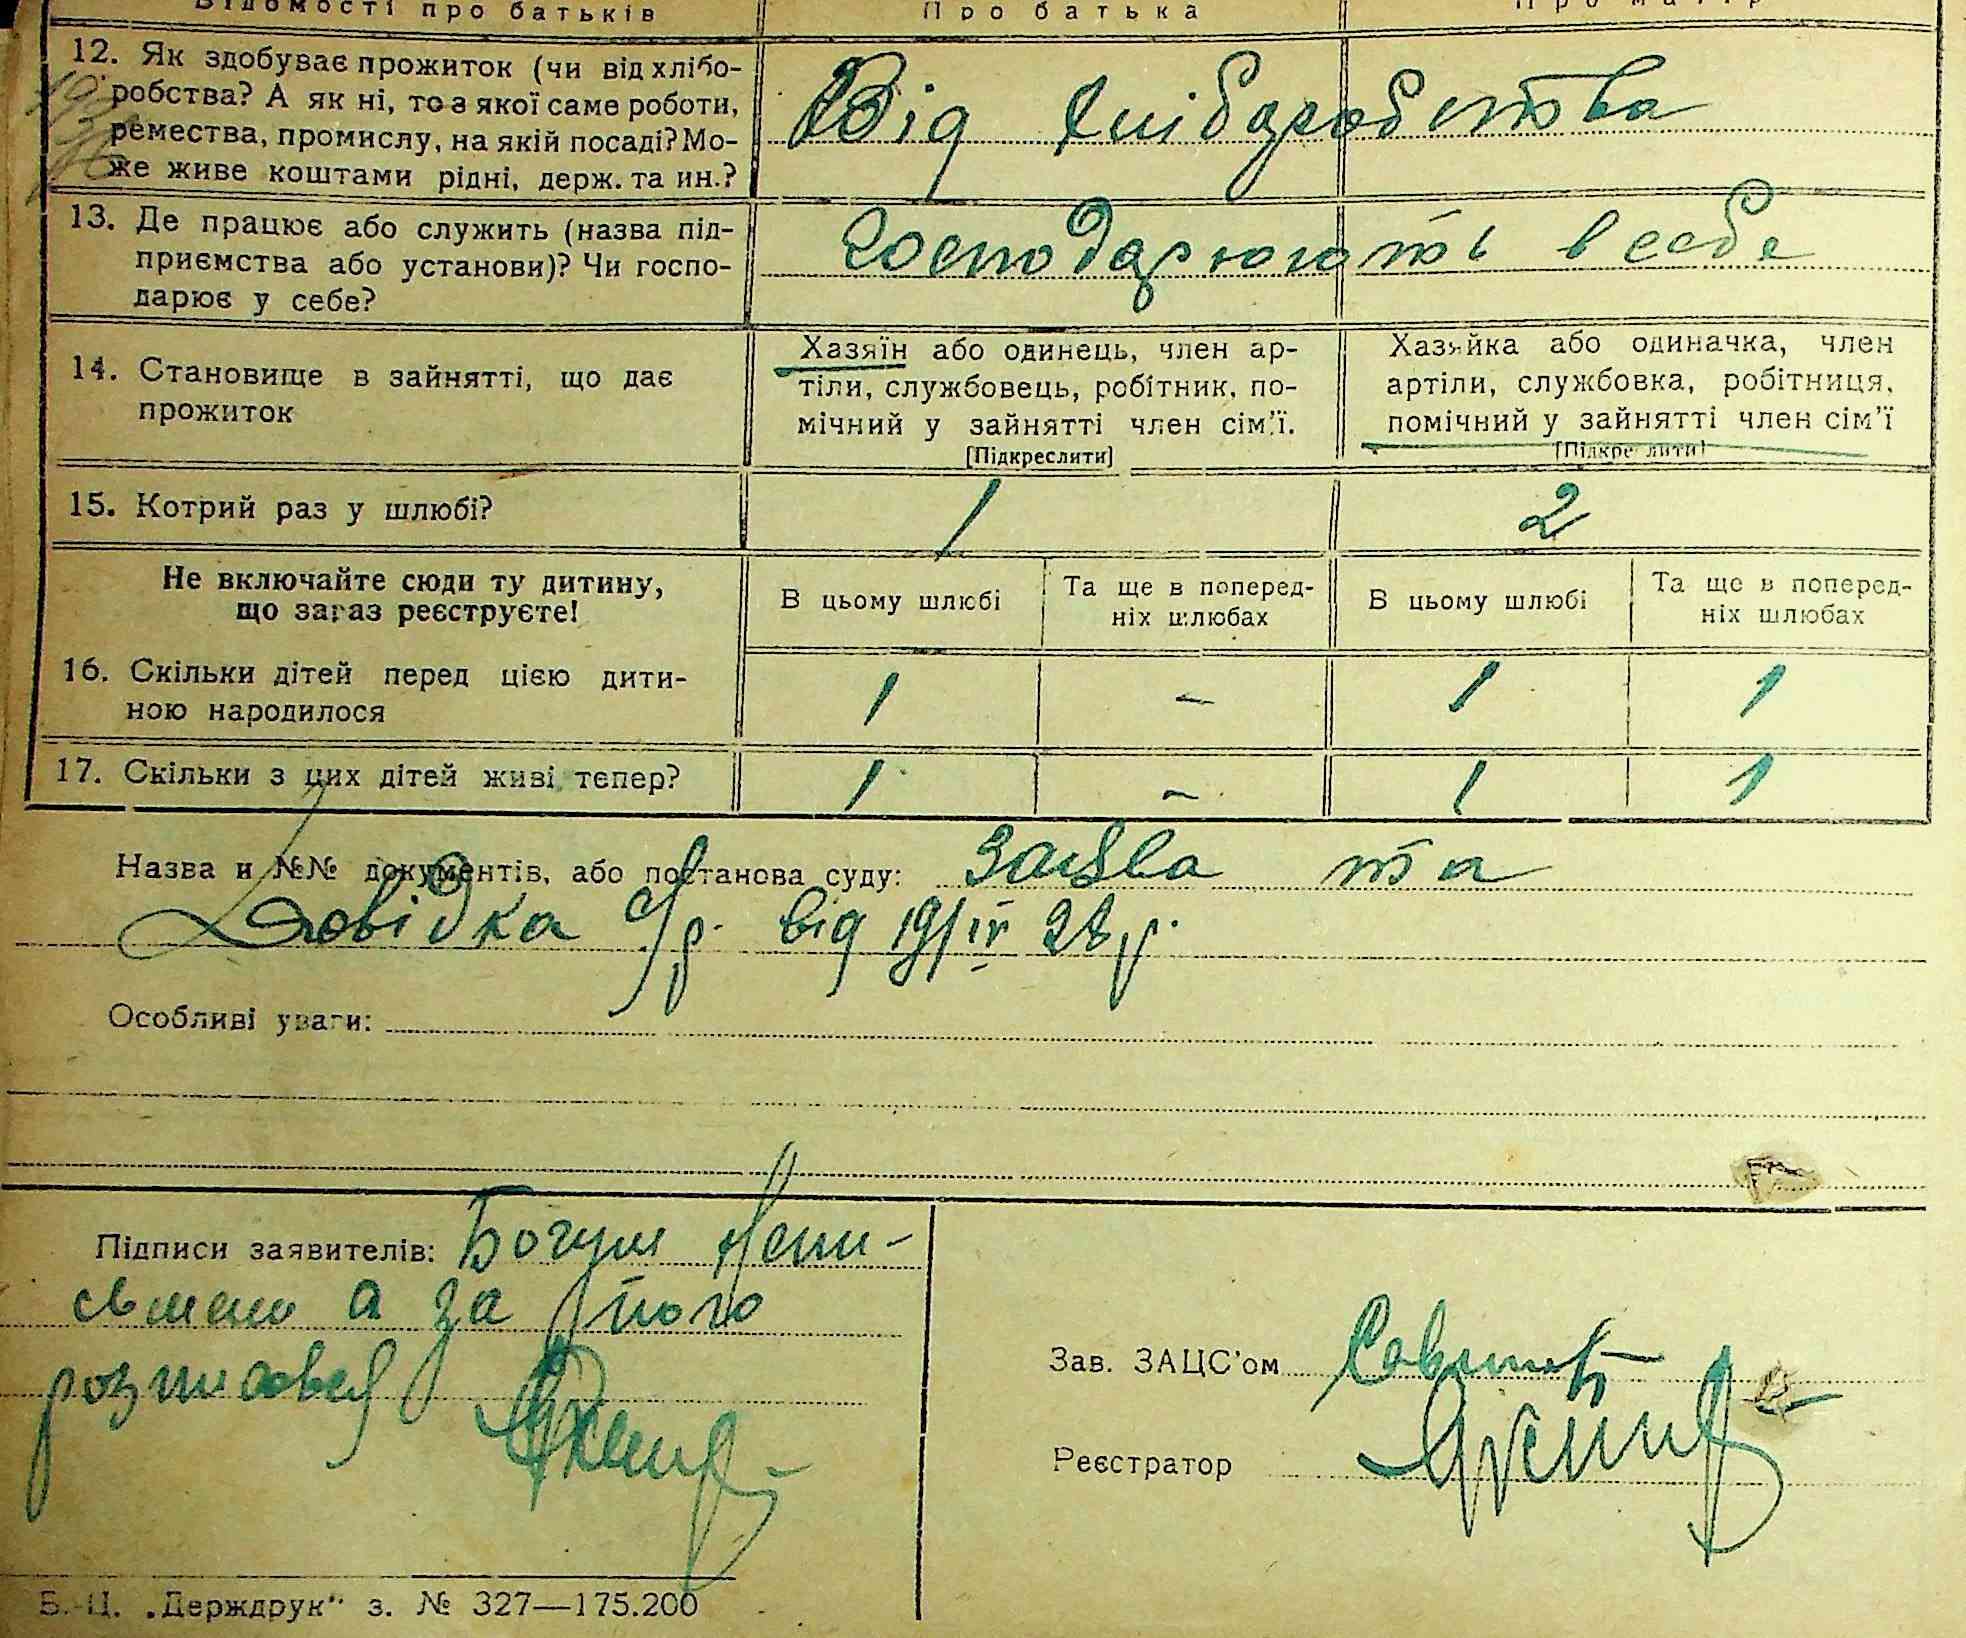 Відомості про батьків
Про батька
Про матір
12. Як здобуває прожиток (чи від хлібо-
робства? А як ні, то з якої саме роботи,
ремества, промислу, на якій посаді? Мо-
же живе коштами рідні, держ. та ин.?
Від хліборобства
13. Де працює або служить (назва під-
приємства або установи)? Чи госпо-
дарює у себе?
господарюють в себе
14. Становище в зайнятті, що дає
прожиток
Хазяїн або одинець, член ар-
тіли, службовець, робітник, по-
мічний у зайнятті член сім'ї.
[Підкреслити]
Хазяйка або одиначка, член
артіли, службовка, робітниця,
помічний у зайнятті член сім'ї
[Підкреслити]
15. Котрий раз у шлюбі?
1
2
Не включайте сюди ту дитину,
що зараз реєструєте!
В цьому шлюбі
Та ще в поперед-
ніх шлюбах
В цьому шлюбі
Та ще в поперед-
ніх шлюбах
16. Скільки дітей перед цією дити-
ною народилося
1 - 1 1
17. Скільки з цих дітей живі тепер?
1 - 1 1
Назва и №№ документів, або постанова суду: Заява та
Довідка с/р. від 19/IV 28 р.
Особливі уваги:
Підписи заявителів: Богуш Непи-
сьмено а за його
розписовся
Зав. ЗАЦС'ом
Реєстратор
Б.-Ц. „Держдрук" з. № 327—175.200